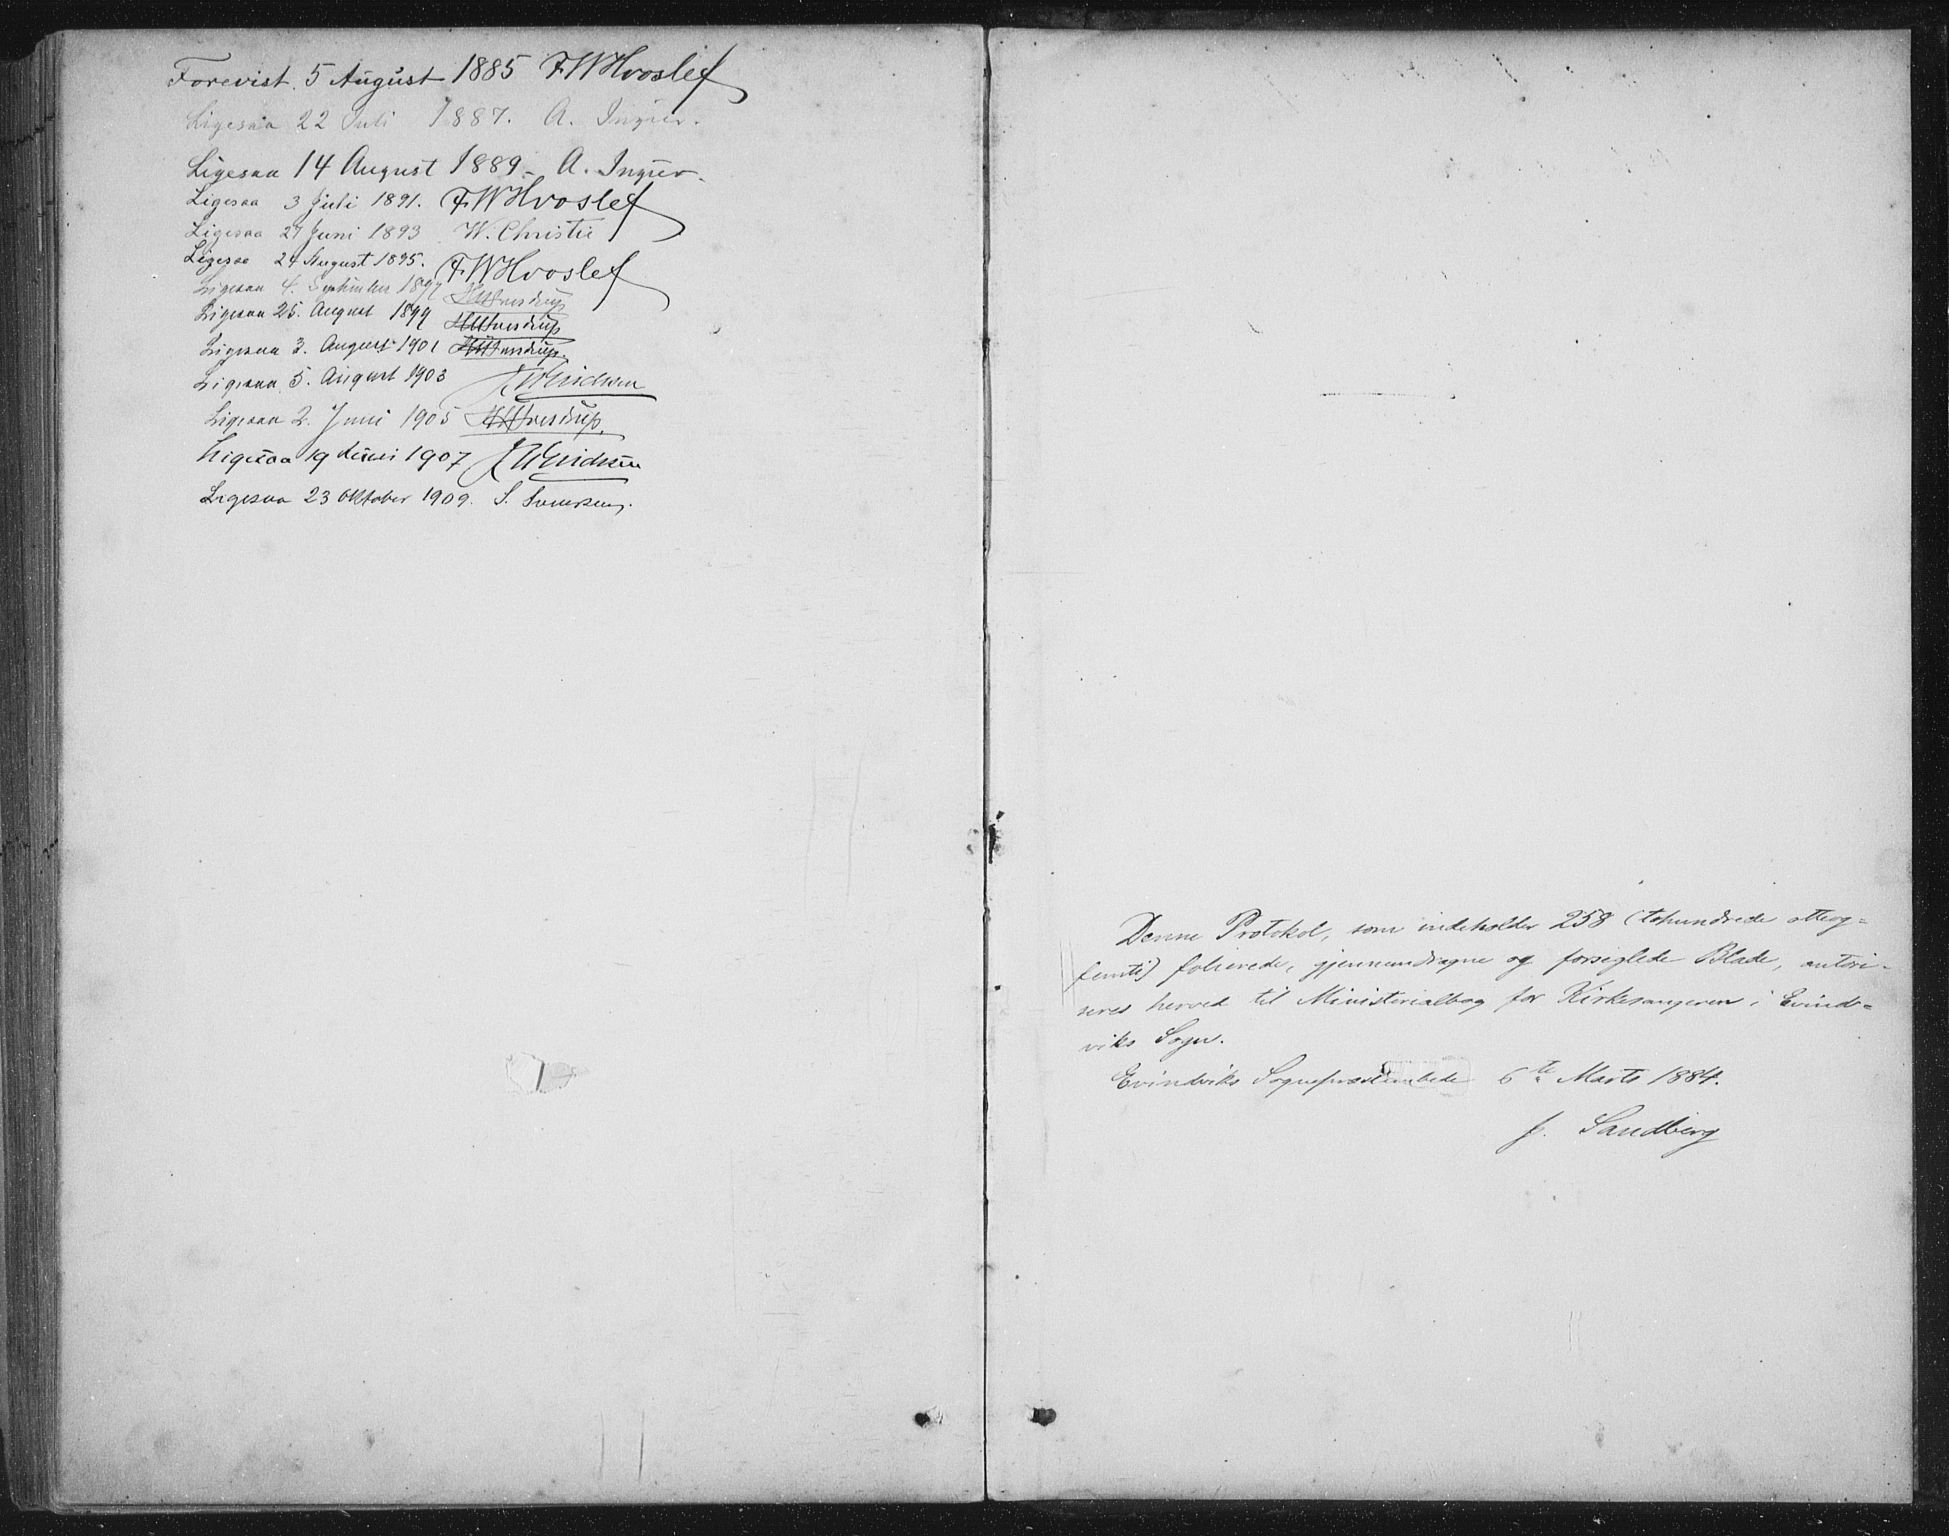 Forevist 5 August 1885 F W Hvoslef
Ligesaa 22 Juli 1887. A.
Ligesaa 14 August 1889. A.
Ligesaa 3 Juli 1891. F W Hvoslef
Ligesaa 27 Juni 1893 W. Christie
Ligesaa 24 August 1895. F W Hvoslef
Ligesaa 4. September 1897
Ligesaa 25. August 1899
Ligesaa 3. August 1901
Ligesaa 5. August 1903
Ligesaa 2. Juni 1905
Ligesaa 19 1907
Ligesaa 23 Oktober 1909. S.
Denne Protokol, som indeholder 258 (tohundrede otteog=
femti) folierede, gjennemdragne og forseglede Blade, autori-
seres herved til Ministerialbog for Kirkesangeren i Evind=
viks Sogn.
Evindviks Sognepræstembede 6te Marts 1884.
J. Sandberg